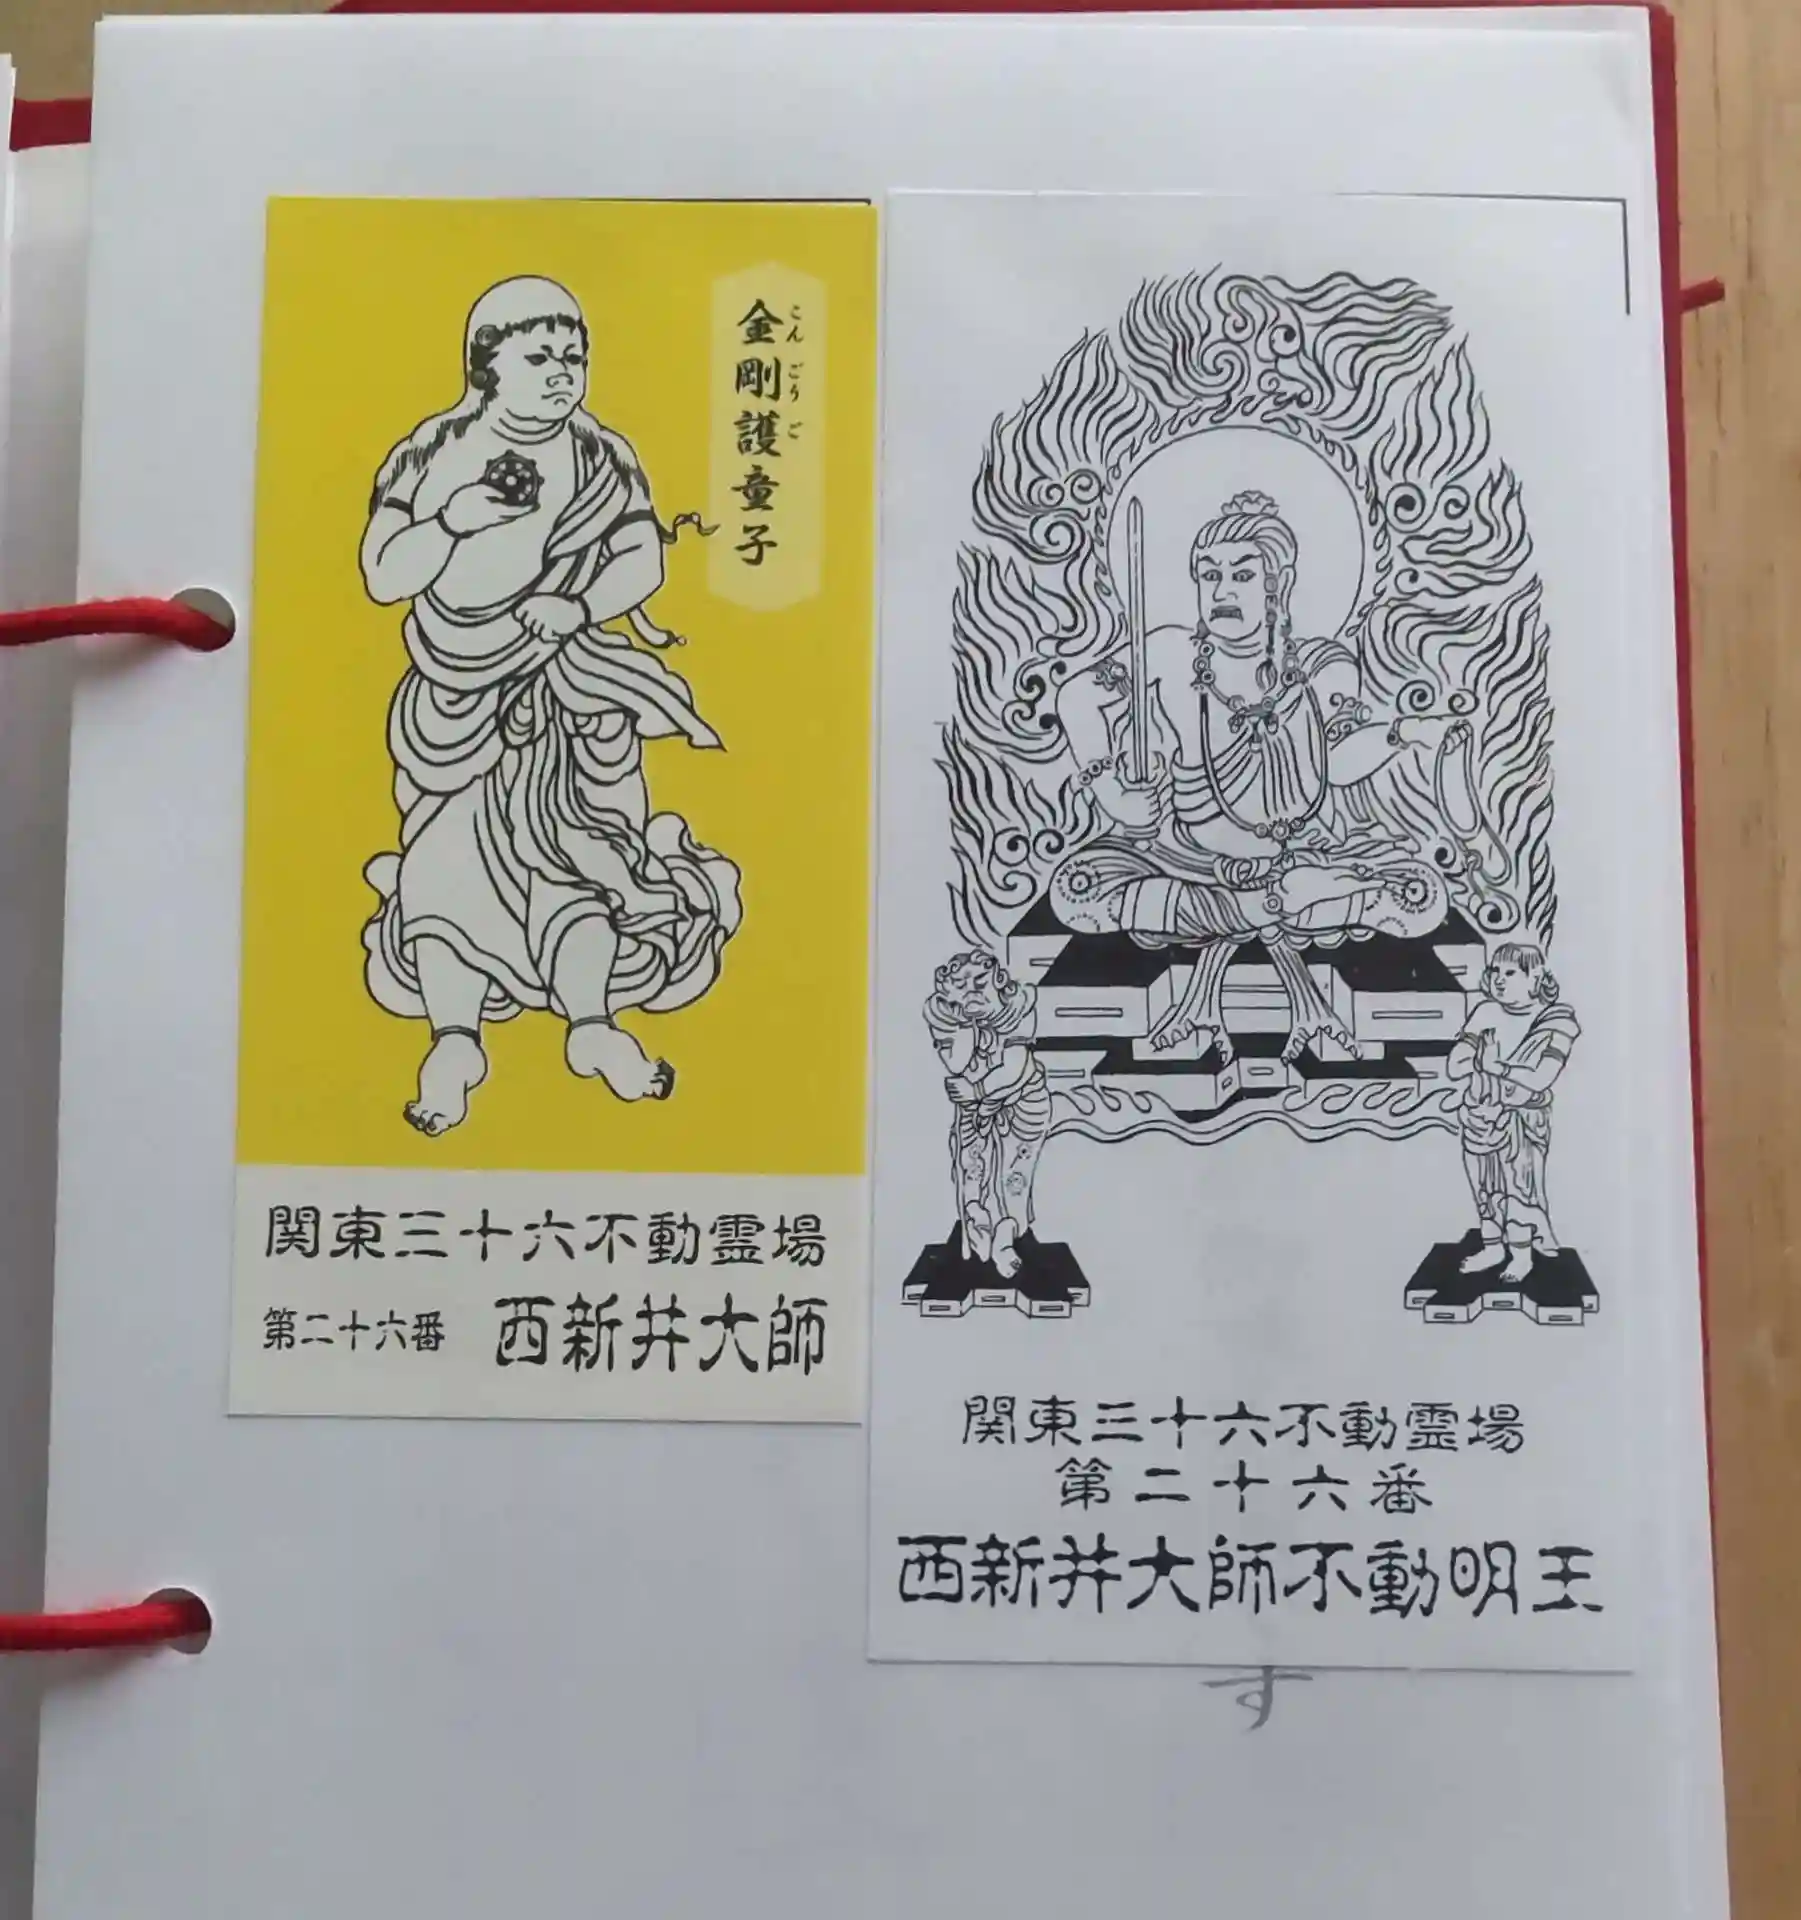 金剛護童子
こんごうご
関東三十六不動霊場
第二十六番 西新井大師
関東三十六不動霊場
第二十六番
西新井大師不動明王
す